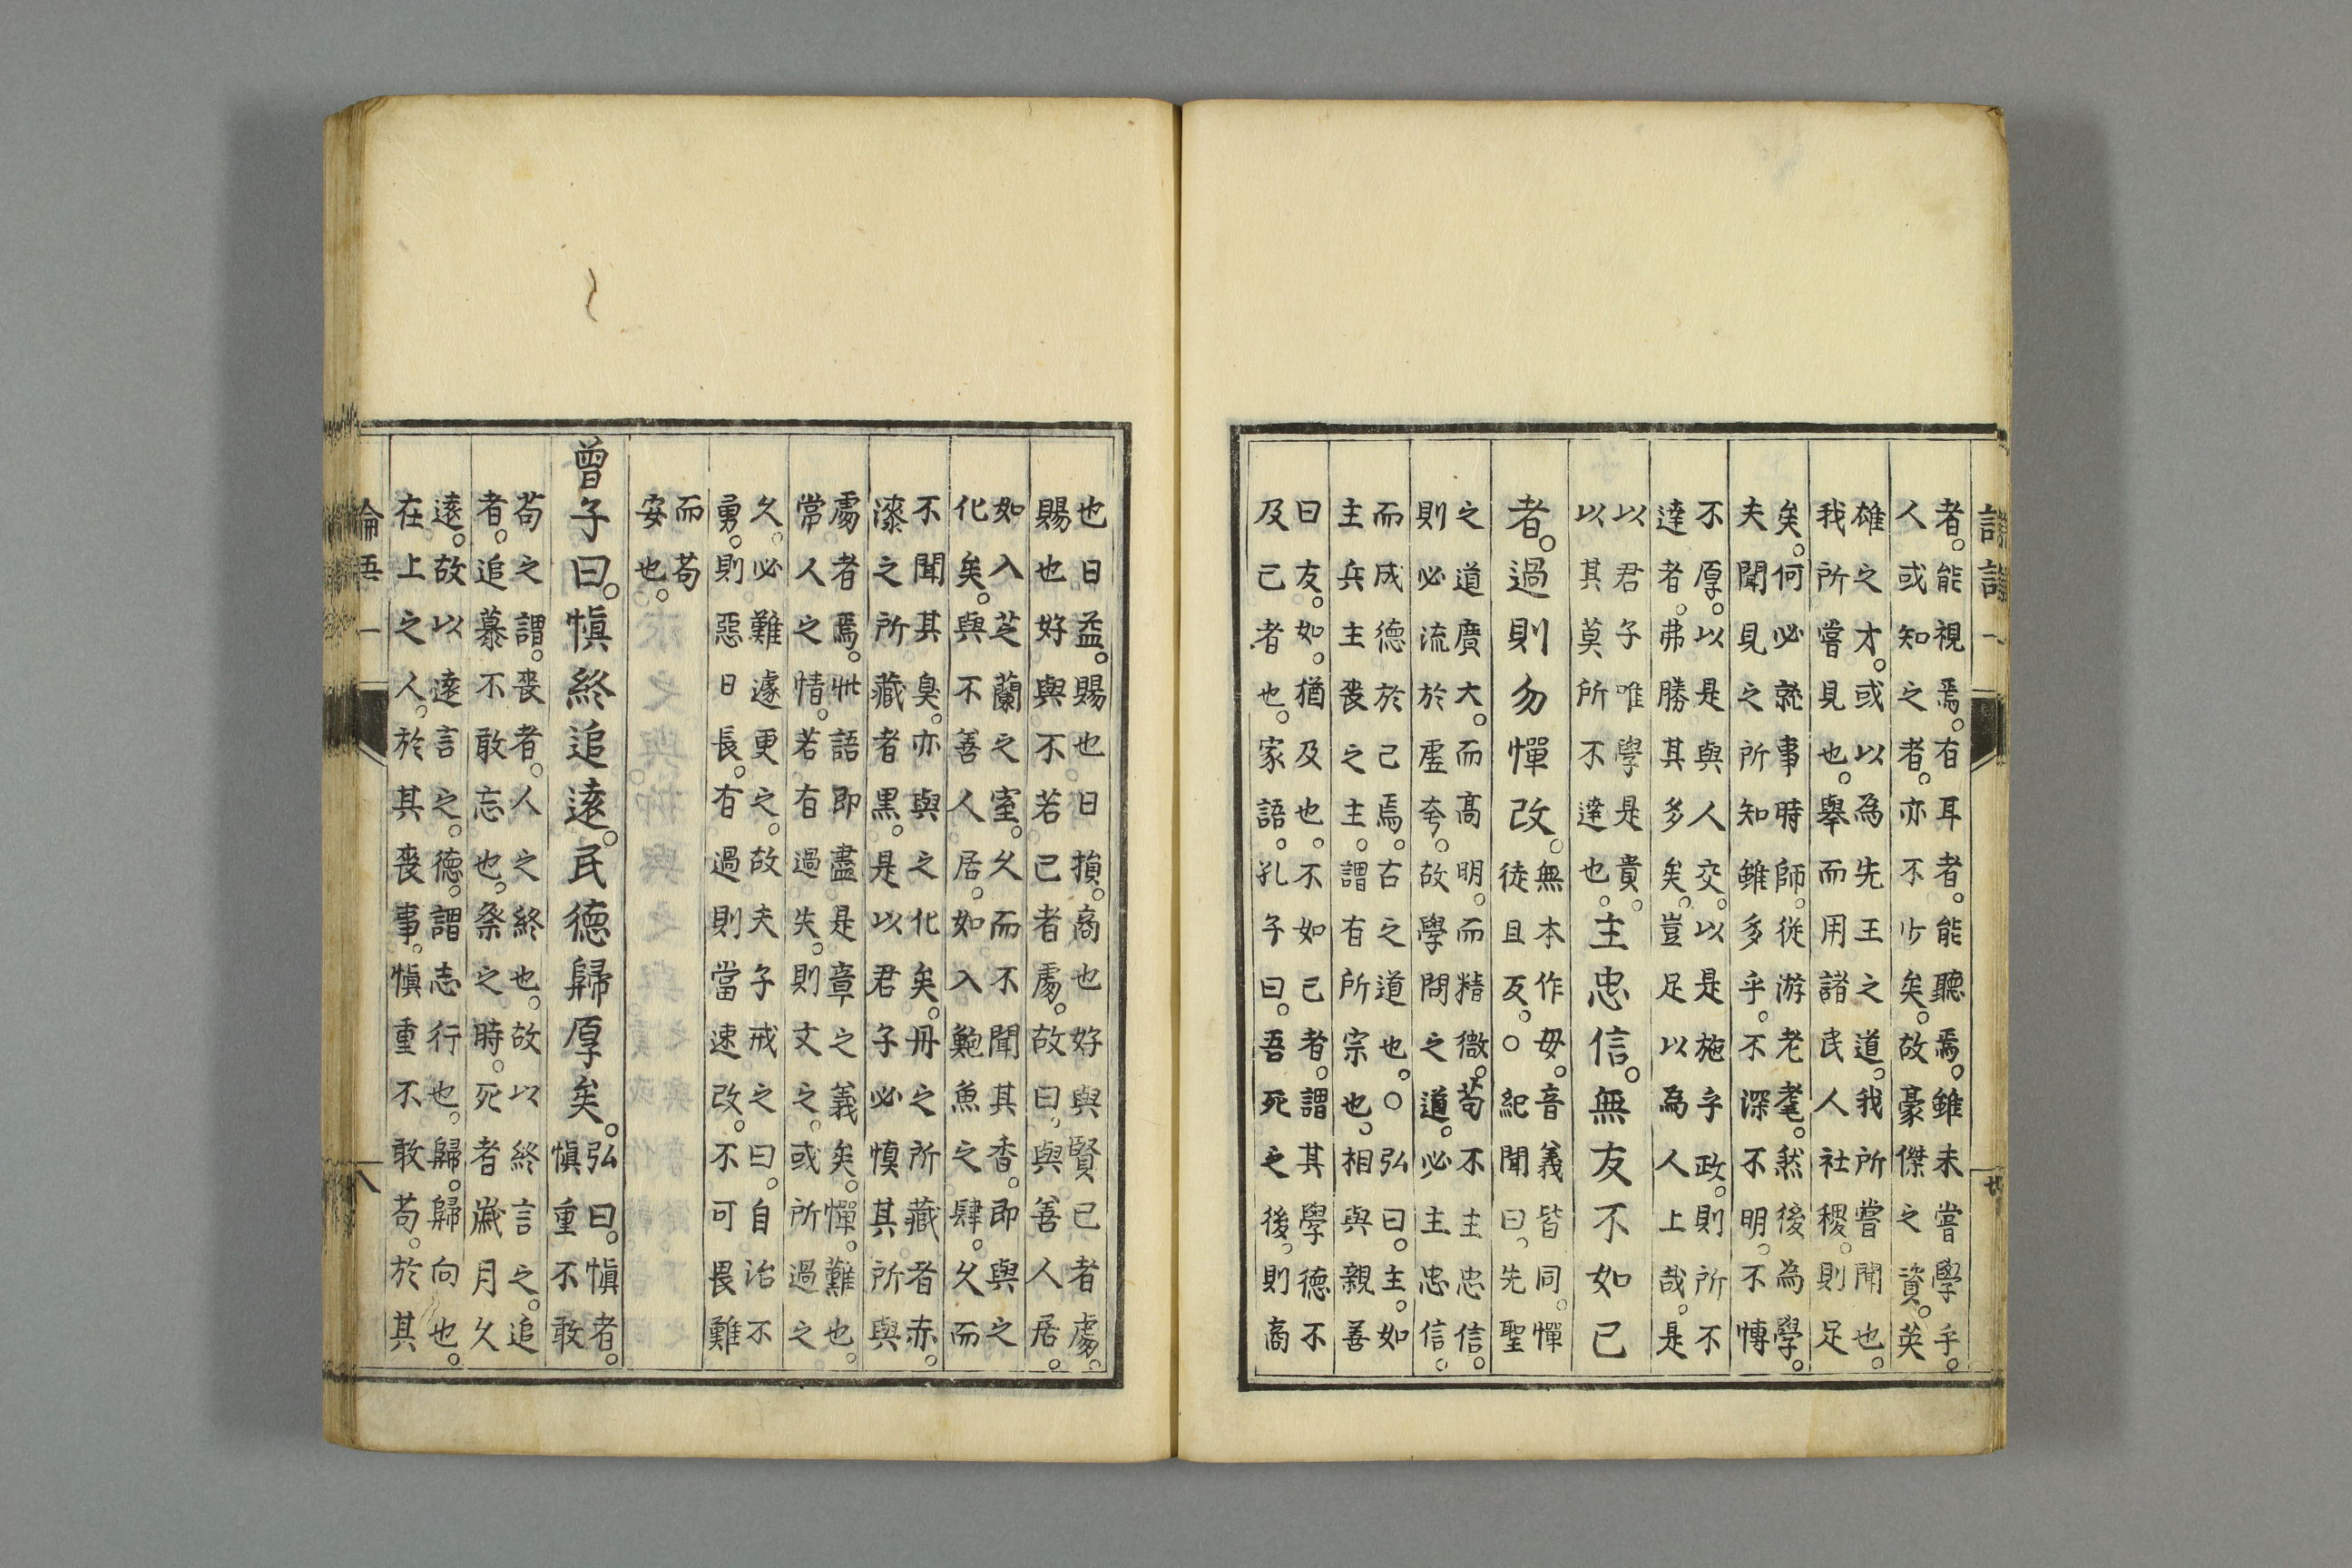 者。能視焉。有耳者。能聽焉。雖未嘗學乎。
人或知之者。亦不少矣。故豪傑之資。英
雄之才。或以為先王之道。我所嘗聞也。
我所嘗見也。舉而用諸民人社稷。則足
矣。何必就事時師。從游老耄。然後為學。
夫聞見之所知雖多乎。不深不明。不博
不厚。以是與人交。以是施乎政。則所不
達者。弗勝其多矣。豈足以為人上哉。是
以君子唯學是貴。
以其莫所不達也。
主忠信。無友不如己
者。過則勿憚改。
無本作毋。音義皆同。憚
徒且反。○紀聞曰。先聖
之道廣大。而高明。而精微。苟不主忠信。
則必流於虛夸。故學問之道。必主忠信。
而成德於己焉。古之道也。○弘曰。主。如
主兵主喪之主。謂有所宗也。相與親善
曰友。如。猶及也。不如己者。謂其學德不
及己者也。家語。孔子曰。吾死之後。則商
也日益。賜也日損。商也好與賢己者處。
賜也好與不若己者處。故曰。與善人居。
如入芝蘭之室。久而不聞其香。即與之
化矣。與不善人居。如入鮑魚之肆。久而
不聞其臭。亦與之化矣。丹之所藏者赤。
漆之所藏者黑。是以君子必慎其所與
處者焉。此語即盡是章之義矣。憚。難也。
常人之情。若有過失。則文之。或所過之
久。必難遽更之。故夫子戒之曰。自治不
勇。則惡日長。有過則當速改。不可畏難
而苟
安也。
曾子曰。慎終追遠。民德歸厚矣。
弘曰。慎者。
慎重不敢
苟之謂。喪者。人之終也。故以終言之。追
者。追慕不敢忘也。祭之時。死者歲月久
遠。故以遠言之。德。謂志行也。歸。歸向也。
在上之人。於其喪事。慎重不敢苟。於其
論語 一
八